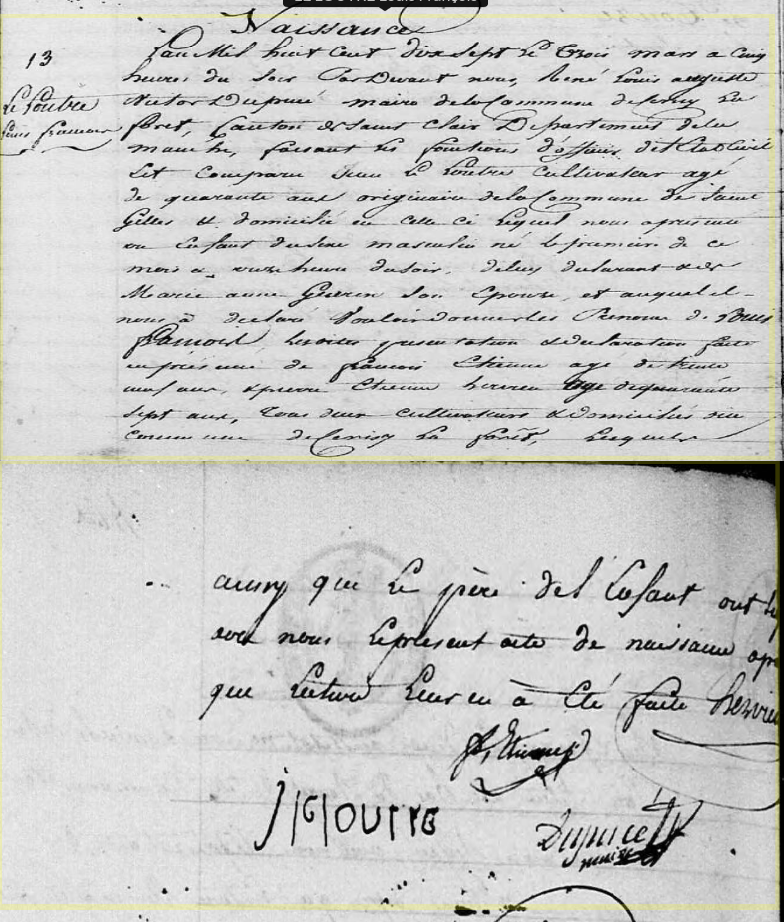 Naissance
13
Le Loutre
Louis francois
L'an Mil huit Cent dix sept Le Trois mars a Cinq
heures du Soir Par Devant nous, René Louis auguste
Victor Dupucé maire de la Commune de Cerisy La
forêt, Canton de Saint Clair Departement de la
manche, faisant Les fonctions d'officier de l'Etat Civil
Est Comparu Jean Le Loutre Cultivateur agé
de quarante ans originaire de la Commune de Saint
Gilles & domicilié en celle ci Lequel nous a presenté
un Enfant du Sexe masculin né le premier de ce
mois a onze heure du Soir, de lui declarant & de
Marie anne Guerin Son Epouse, et auquel il
nous a declaré Vouloir donner Les Prenoms de Louis
francois Lesdites presentation & declaration faite
en presence de francois Etienne agé de trente
neuf ans, & pierre Etienne hervieu agé de quarante
Sept ans, Tous deux cultivateurs & domiciliés en
commune de Cerisy La forêt, Lesquels
aussy que Le père de l'Enfant ont
avec nous Le present acte de naissance
que Lecture Leur en à Eté faite hervieu
f. Etienne
J l OUTRE
Dupucé
maire